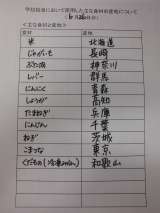 学校給食において使用した主な食材の産地について
(6月26日分)
<主な食材と産地>
主な食材 産地
米 北海道
じゃがいも 長崎
ぶた肉 神奈川
レバー 群馬
にんにく 青森
しょうが 高知
たまねぎ 兵庫
にんじん 千葉
ねぎ 茨城
こまつな 東京
くだもの(冷凍みかん) 和歌山